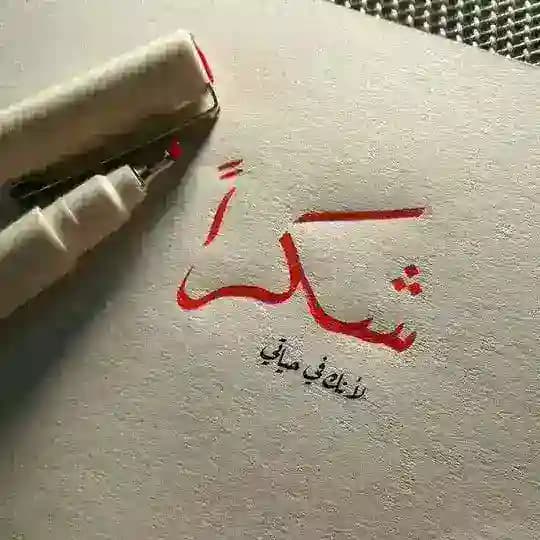 شكراً
لأنك في حياتي